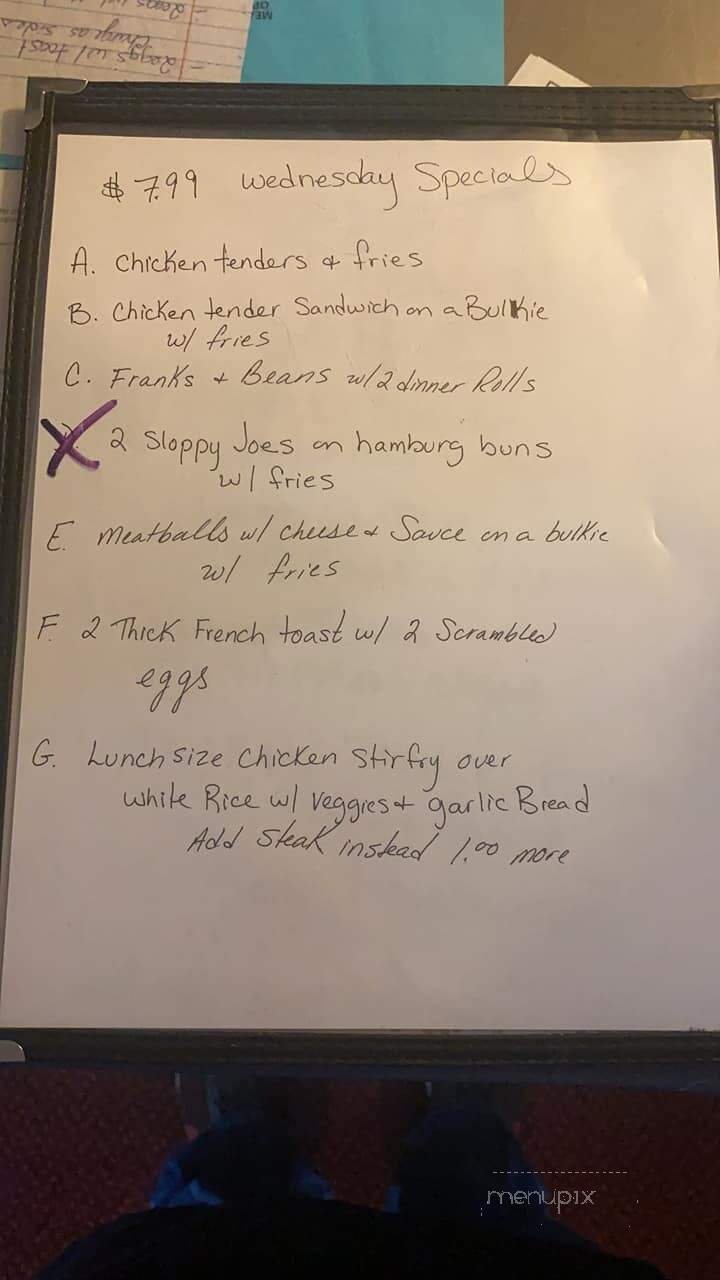 2eggs w/ toast
Change as sides
$ 7.99 Wednesday Specials
A. Chicken tenders & fries
B. Chicken tender Sandwich on a Bulkie
w/ fries
C. Franks + Beans w/2 dinner Rolls
2 Sloppy Joes on hamburg buns
w/ fries
E. Meatballs w/ cheese + Sauce on a bulkie
w/ fries
F. 2 Thick French toast w/ 2 Scrambled
eggs
G. Lunch size Chicken Stirfry over
White Rice w/ veggies + garlic Bread
Add Steak instead 1.00 more
menupix